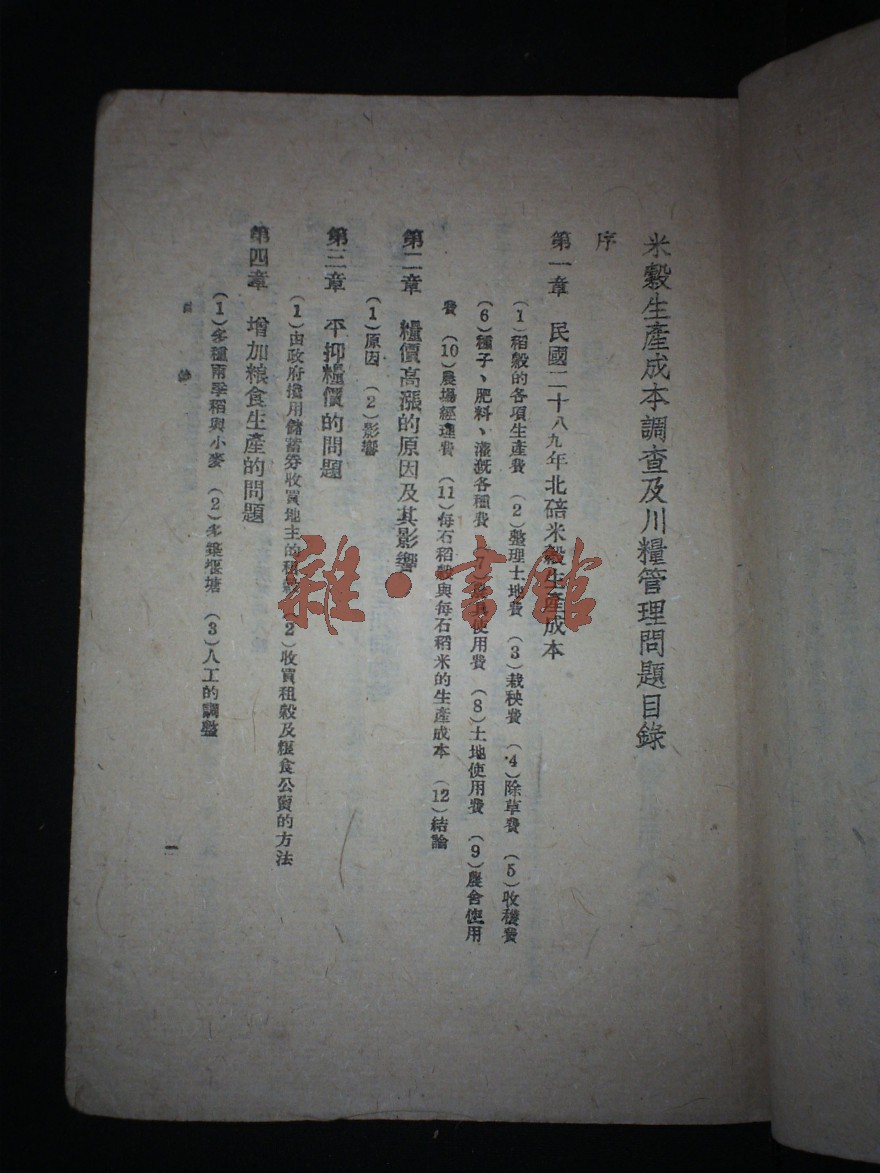 米穀生產成本調查及川糧管理問題目錄
序
第一章 民國二十八九年北碚米穀生產成本
（1）稻穀的各項生產費 （2）整理土地費 （3）栽秧費 （4）除草費 （5）收穫費
（6）種子、肥料、灌溉各種費 （7）農具使用費 （8）土地使用費 （9）農舍使用
費 （10）農場經理費 （11）每石稻穀與每石稻米的生產成本 （12）結論
第二章 糧價高漲的原因及其影響
（1）原因 （2）影響
第三章 平抑糧價的問題
（1）由政府撥用儲蓄券收買地主的租穀 （2）收買租穀及糧食公賣的方法
第四章 增加粮食生產的問題
（1）多種兩季稻與小麥 （2）多築堰塘 （3）人工的調整
目
一
雜·書館